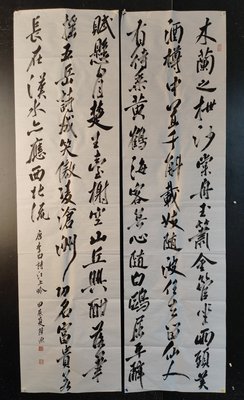 木蘭之枻沙棠舟玉簫金管坐兩頭美
酒樽中置千斛載妓隨波任去留仙人
有待乘黃鶴海客無心隨白鷗屈平辭
賦懸日月楚王臺榭空山丘興酣落筆
搖五岳詩成笑傲凌滄洲功名富貴若
長在漢水亦應西北流
唐李白詩江上吟